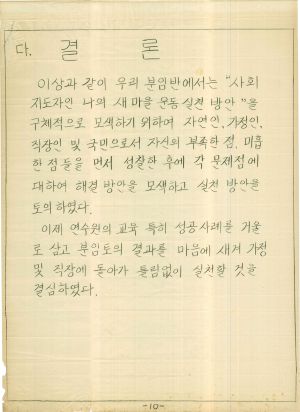 다. 결 론
이상과 같이 우리 분임반에서는 "사회
지도자인 나의 새마을 운동 실천 방안"을
구체적으로 모색하기 위하여 자연인, 가정인,
직장인 및 국민으로서 자신의 부족한 점, 미흡
한 점들을 먼저 성찰한 후에 각 문제점에
대하여 해결 방안을 모색하고 실천 방안을
토의 하였다.
이제 연수원의 교육 특히 성공사례를 거울
로 삼고 분임토의 결과를 마음에 새겨 가정
및 직장에 돌아가 틀림없이 실천할 것을
결심하였다.
-10-